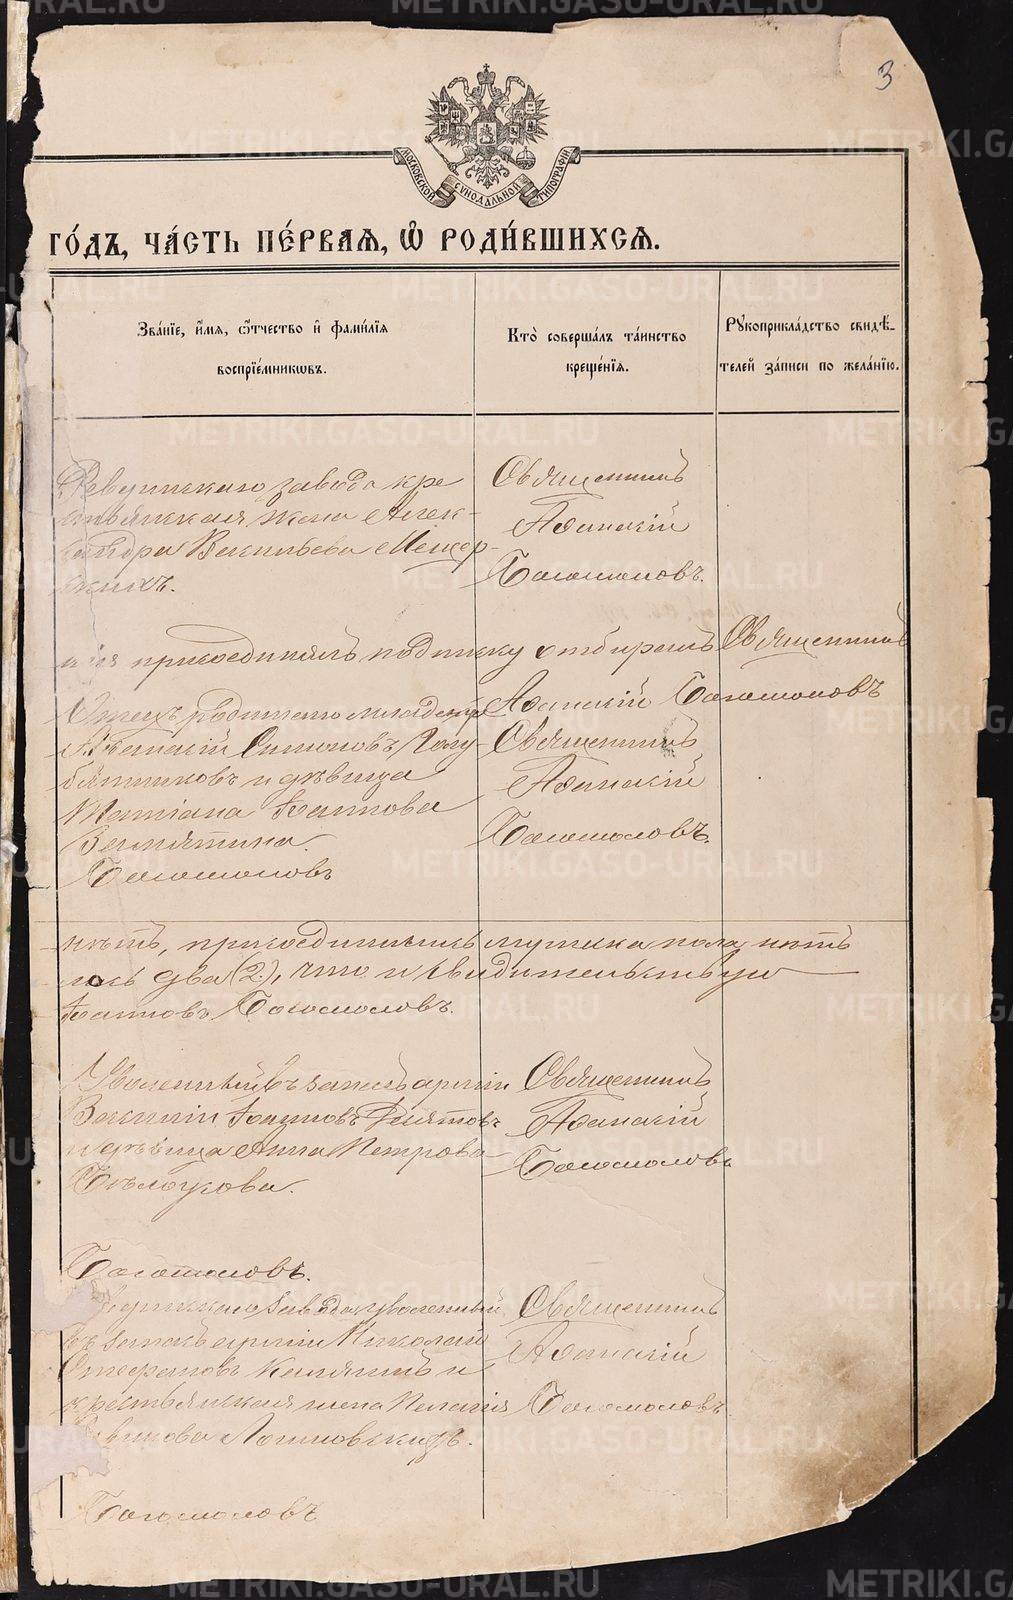 3
МОСКОВСКОЙ СѴНОДАЛЬНОЙ ТИПОГРАФІИ
ГО́ДЪ, ЧА́СТЬ ПЕ́РВАѦ, Ѡ҆ РОДИ́ВШИХСѦ.
Зва́нїе, и҆́мѧ, ѻ҆́тчество и҆ фами́лїѧ
воспрїе́мникѡвъ.
Кто̀ соверша́лъ та́инство
креще́нїѧ.
Рꙋкоприкла́дство свидѣ́-
телей за́писи по жела́нїю.
Ревдинскаго завода кре
стьянская жена Алек-
сандра Васильева Мещер-
скихъ.
Священникъ
Афанасій
Богомоловъ.
присоединялъ подписку отбиралъ Священникъ
Афанасій Богомоловъ
Отецъ родителю младенца
Симоновъ Голу-
бятниковъ и дѣвица
Татіана Іоаннова
Замятина.
Богомоловъ
Священникъ
Афанасій
Богомоловъ.
присоединились мужска пола нѣтъ
лось два (2), что и свидѣтельствую
Іоанновъ Богомоловъ.
Уволенный въ запасъ арміи
Василій Іоанновъ
и дѣвица Анна Петрова
Бѣлоусова.
Священникъ
Афанасій
Богомоловъ
Богомоловъ.
завода уволенный
въ запасъ арміи Николай
Стефановъ и
крестьянская жена Пелагія
Логиновскихъ.
Священникъ
Афанасій
Богомоловъ
Богомоловъ
METRIKI.GASO-URAL.RU